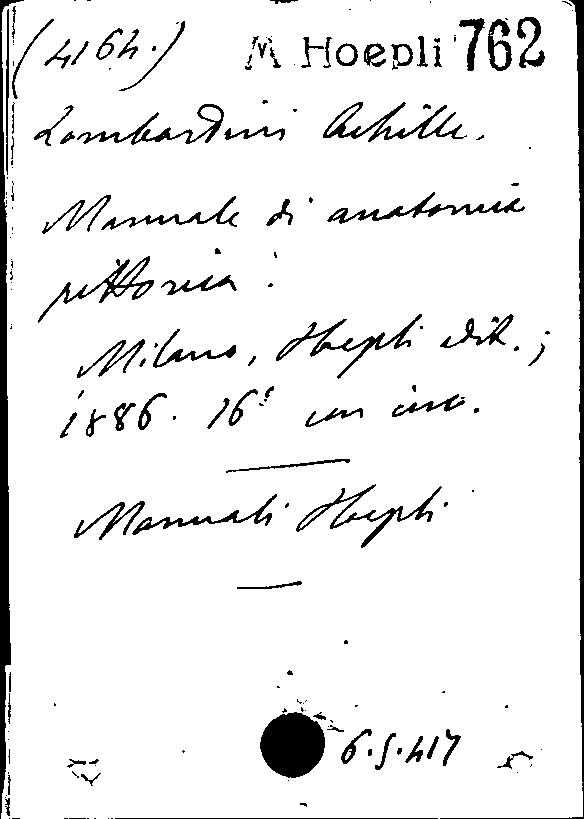 (4164.) M Hoepli 762
Lombardini Achille.
Manuale di anatomia
pittorica.
Milano, Hoepli edit.;
1886. 16° con inc.
Manuali Hoepli
6.5.417